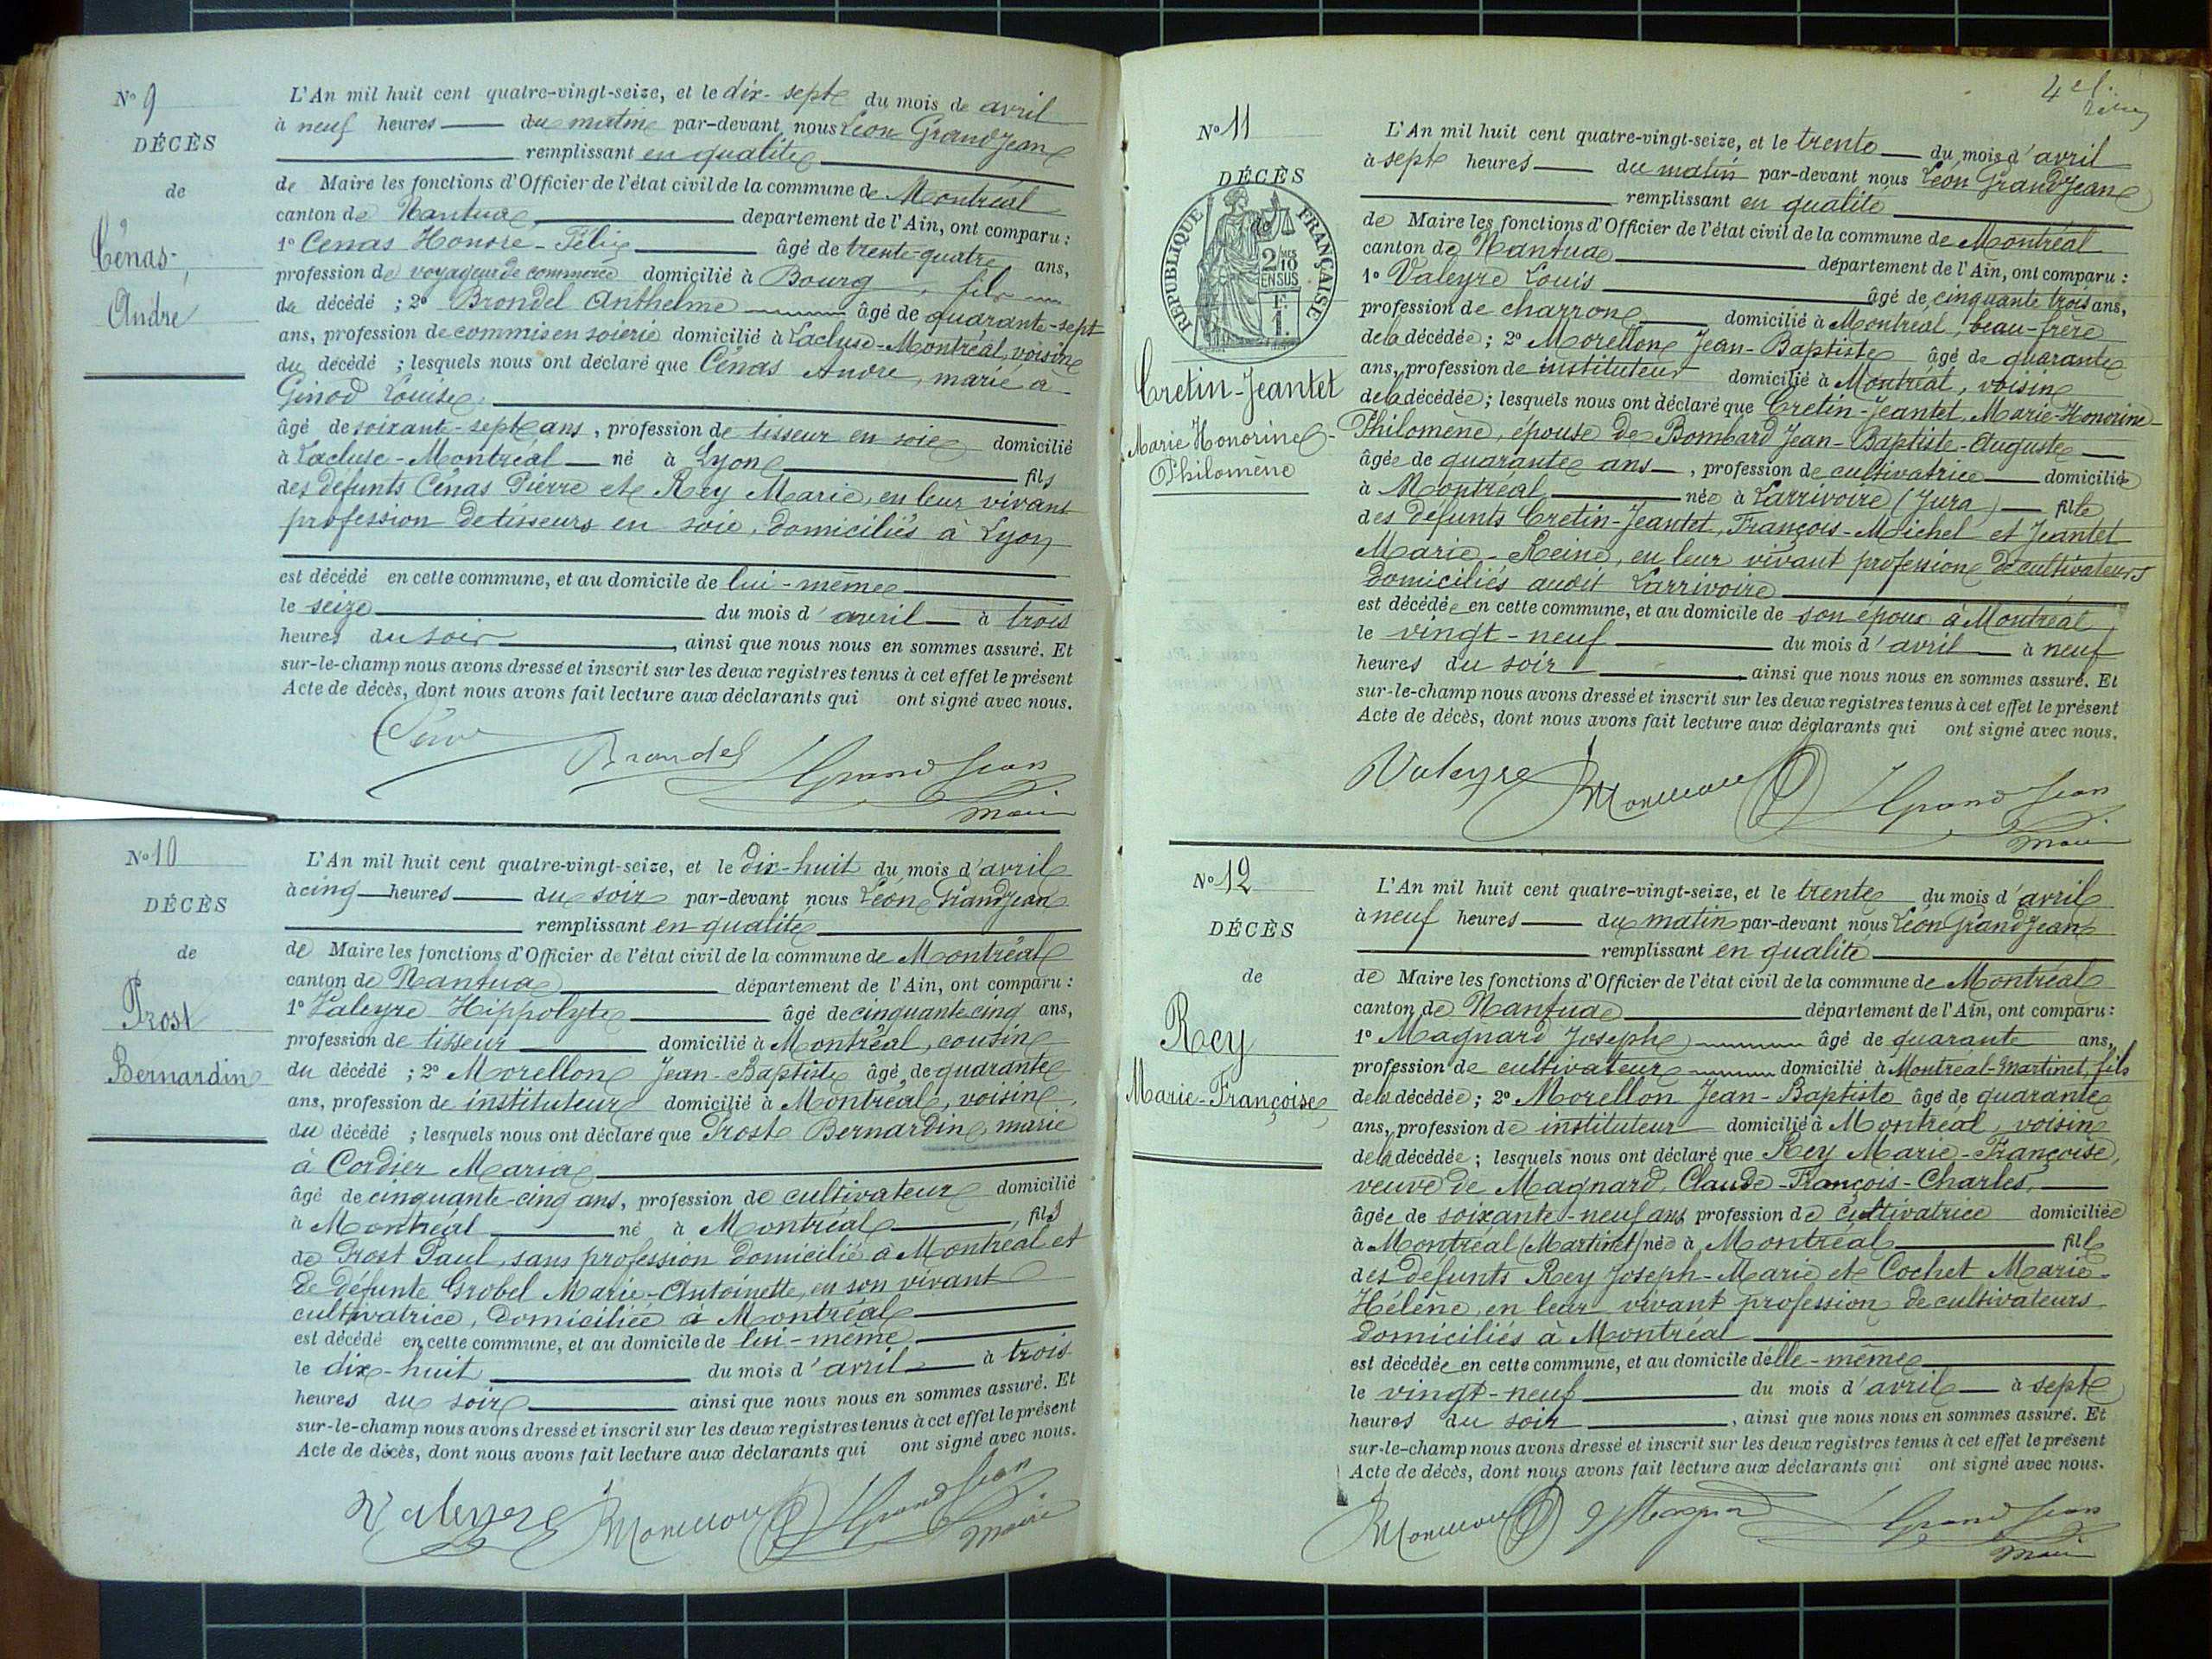 N° 9
DÉCÈS
de
Cénas
André
L'An mil huit cent quatre-vingt-seize, et le dix-sept du mois de avril
à neuf heures du matin par-devant nous Léon Grandjean
remplissant en qualité
de Maire les fonctions d'Officier de l'état civil de la commune de Montréal
canton de Nantua département de l'Ain, ont comparu :
1° Cenas Honoré-Félix âgé de trente-quatre ans,
profession de voyageur de commerce domicilié à Bourg, fils
du décédé ; 2° Brondel Anthelme âgé de quarante-sept
ans, profession de commis en soierie domicilié à Lacluse-Montréal, voisin
du décédé ; lesquels nous ont déclaré que Cénas André, marié à
Ginod Louise,
âgé de soixant-sept ans, profession de tisseur en soie domicilié
à Lacluse-Montréal né à Lyon fils
des défunts Cénas Pierre et Rey Marie, en leur vivant
profession de tisseurs en soie, domiciliés à Lyon
est décédé en cette commune, et au domicile de lui-même
le seize du mois d'avril à trois
heures du soir, ainsi que nous nous en sommes assuré. Et
sur-le-champ nous avons dressé et inscrit sur les deux registres tenus à cet effet le présent
Acte de décès, dont nous avons fait lecture aux déclarants qui ont signé avec nous.
Brondel Grandjean
Maire
N° 10
DÉCÈS
de
Prost
Bernardin
L'An mil huit cent quatre-vingt-seize, et le dix-huit du mois d'avril
à cinq heures du soir par-devant nous Léon Grandjean
remplissant en qualité
de Maire les fonctions d'Officier de l'état civil de la commune de Montréal
canton de Nantua département de l'Ain, ont comparu :
1° Valeyre Hippolyte âgé de cinquante cinq ans,
profession de tisseur domicilié à Montréal, cousin
du décédé ; 2° Morellon Jean-Baptiste âgé de quarante
ans, profession de instituteur domicilié à Montréal, voisin
du décédé ; lesquels nous ont déclaré que Prost Bernardin, marié
à Cordier Maria
âgé de cinquante-cinq ans, profession de cultivateur domicilié
à Montréal né à Montréal, fils
de Prost Paul, sans profession domicilié à Montréal et
de défunte Grobel Marie-Antoinette, en son vivant
cultivatrice, domiciliée à Montréal
est décédé en cette commune, et au domicile de lui-même
le dix-huit du mois d'avril à trois
heures du soir ainsi que nous nous en sommes assuré. Et
sur-le-champ nous avons dressé et inscrit sur les deux registres tenus à cet effet le présent
Acte de décès, dont nous avons fait lecture aux déclarants qui ont signé avec nous.
Valeyre Morellon Grandjean
Maire
N° 11
DÉCÈS
de
RÉPUBLIQUE FRANÇAISE
2 MES
10
EN SUS
F.
1.
Cretin-Jeantet
Marie Honorine-
Philomène
L'An mil huit cent quatre-vingt-seize, et le trente du mois d'avril
à sept heures du matin par-devant nous Léon Grandjean
remplissant en qualité
de Maire les fonctions d'Officier de l'état civil de la commune de Montréal
canton de Nantua département de l'Ain, ont comparu :
1° Valeyre Louis âgé de cinquante trois ans,
profession de charron domicilié à Montréal, beau-frère
de la décédée ; 2° Morellon Jean-Baptiste âgé de quarante
ans, profession de instituteur domicilié à Montréal, voisin
de la décédée ; lesquels nous ont déclaré que Cretin-Jeantet Marie-Honorine-
Philomène, épouse de Bombard Jean-Baptiste-Auguste
âgée de quarante ans, profession de cultivatrice domiciliée
à Montréal née à Larrivoire (Jura) fille
des défunts Cretin-Jeantet, François-Michel et Jeantet
Marie-Reine, en leur vivant profession de cultivateurs
domiciliés audit Larrivoire
est décédée en cette commune, et au domicile de son époux à Montréal
le vingt-neuf du mois d'avril à neuf
heures du soir, ainsi que nous nous en sommes assuré. Et
sur-le-champ nous avons dressé et inscrit sur les deux registres tenus à cet effet le présent
Acte de décès, dont nous avons fait lecture aux déclarants qui ont signé avec nous.
Valeyre Morellon Grandjean
Maire
N° 12
DÉCÈS
de
Rey
Marie-Françoise
L'An mil huit cent quatre-vingt-seize, et le trente du mois d'avril
à neuf heures du matin par-devant nous Léon Grandjean
remplissant en qualité
de Maire les fonctions d'Officier de l'état civil de la commune de Montréal
canton de Nantua département de l'Ain, ont comparu :
1° Magnard Joseph âgé de quarante ans,
profession de cultivateur domicilié à Montréal-Martinet, fils
de la décédée ; 2° Morellon Jean-Baptiste âgé de quarante
ans, profession de instituteur domicilié à Montréal, voisin
de la décédée ; lesquels nous ont déclaré que Rey Marie-Françoise,
veuve de Magnard, Claude-François-Charles,
âgée de soixante-neuf ans profession de cultivatrice domiciliée
à Montréal (Martinet) née à Montréal fille
des défunts Rey Joseph-Marie et Cochet Marie-
Hélène, en leur vivant profession de cultivateurs
domiciliés à Montréal
est décédée en cette commune, et au domicile d'elle-même
le vingt-neuf du mois d'avril à sept
heures du soir, ainsi que nous nous en sommes assuré. Et
sur-le-champ nous avons dressé et inscrit sur les deux registres tenus à cet effet le présent
Acte de décès, dont nous avons fait lecture aux déclarants qui ont signé avec nous.
Morellon Grandjean
Maire